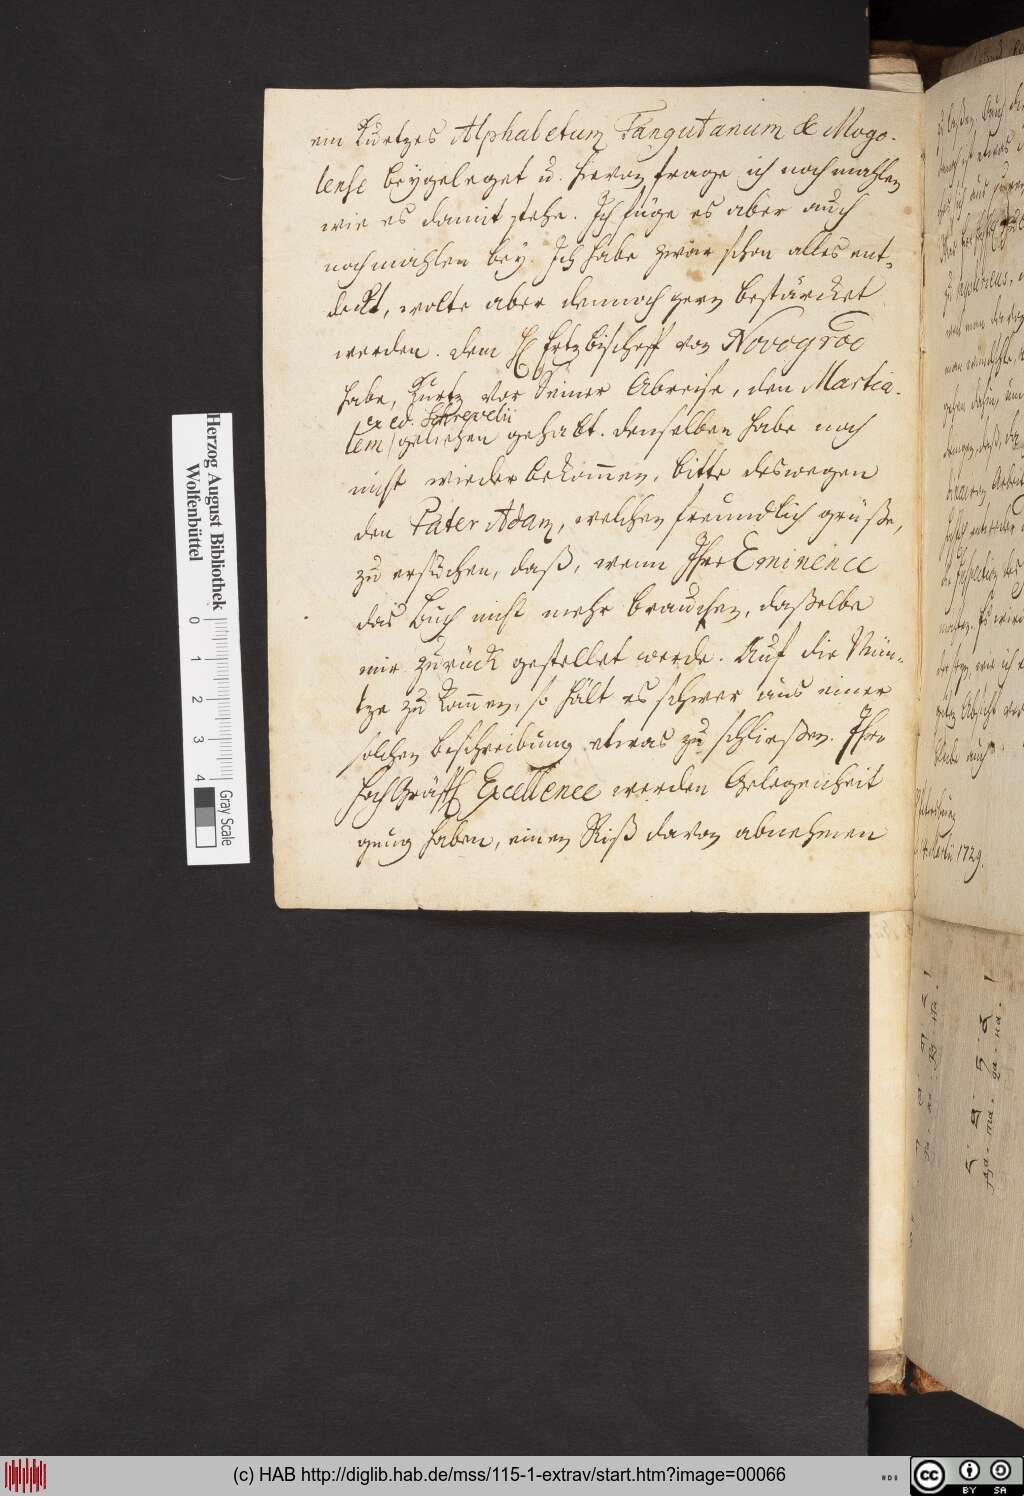 ein kurtzes Alphabetum Tangutanum & Mogo-
lense beygeleget u. hievon frage ich nochmahlen
wie es damit stehe. Ich füge es aber auch
nochmahlen bey. Ich habe zwar schon alles ent-
deckt, wolte aber dennoch gern bestärcket
werden. Dem H Ertzbischoff von Novogrod
habe, kurtz vor Seiner Abreise, den Martia-
ex ed. Schrevelii
lem geliehen gehabt. denselben habe noch
nicht wieder bekom̄en, bitte deswegen
den Pater Adam, welchen freundlich grüße,
zu ersuchen, daß, wenn Ihre Eminence
das Buch nicht mehr brauchen, daßelbe
mir zurück gestellet werde. Auf die Mün-
tze zu kom̄en, so hält es schwer aus einer
solchen beschreibung etwas zu schließen. Ihro
HochGräffl Excellence werden Gelegenheit
gnug haben, einen Riß davon abnehmen
Martii 1729.
Herzog August Bibliothek
Wolfenbüttel
0 1 2 3 4
Gray Scale
(c) HAB http://diglib.hab.de/mss/115-1-extrav/start.htm?image=00066
cc BY SA